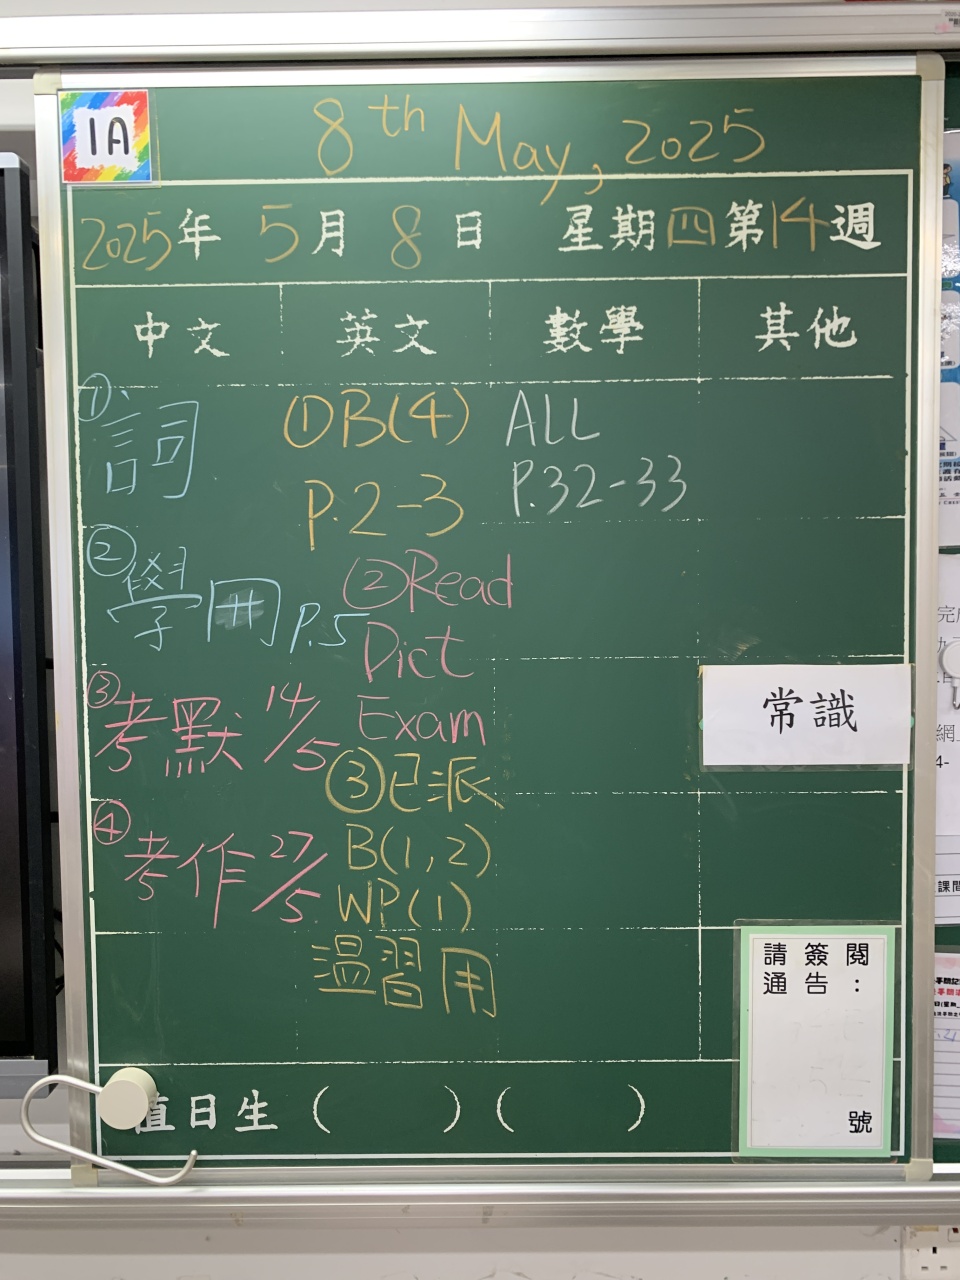 1A
8th May, 2025
2025年 5月 8日 星期四第14週
中文 英文 數學 其他
①詞
②學冊 P.5
③考默 14/5
④考作 27/5
①B(4)
P.2-3
②Read
Dict
Exam
③已派
B(1,2)
WP(1)
溫習用
ALL
P.32-33
常識
請簽閱
通告:
號
值日生 ( ) ( )